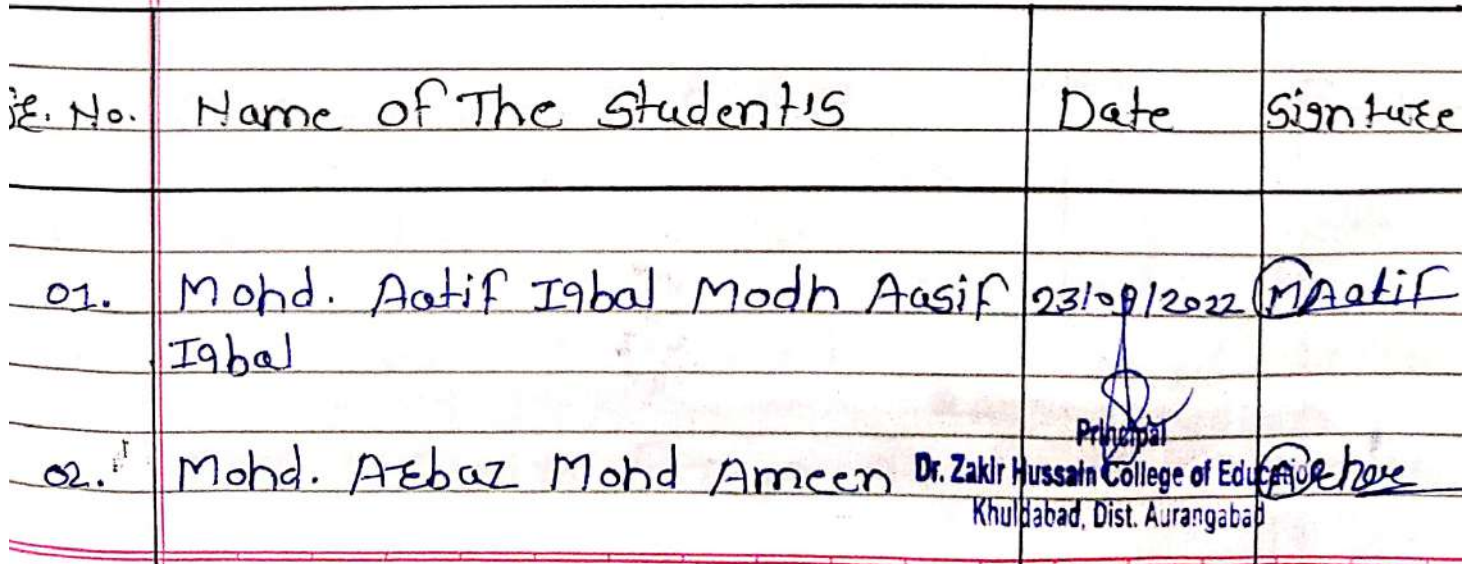 Sr. No. Name of The Student's Date Signture
01. Mohd. Aatif Iqbal Modh Aasif 23/09/2022 MAatif
Iqbal
Principal
02. Mohd. Arbaz Mohd Ameen Dr. Zakir Hussain College of Education
Khuldabad, Dist. Aurangabad